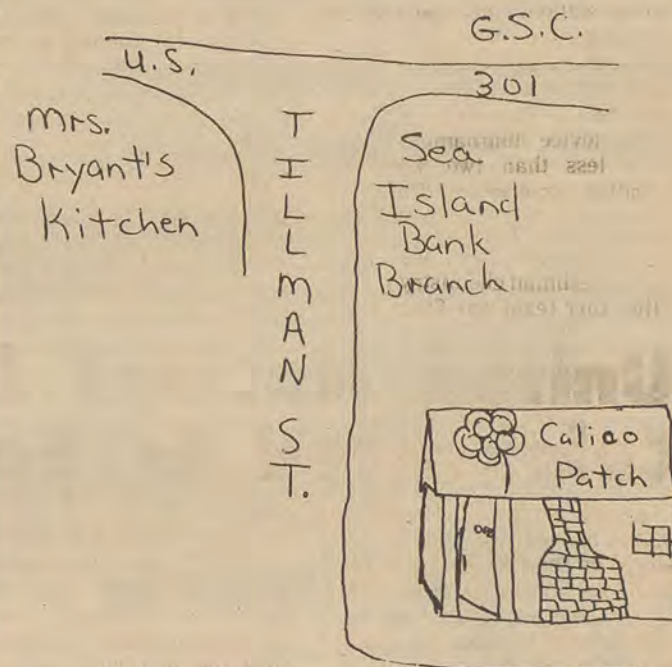 G.S.C.
U.S.
301
Mrs.
Bryant's
Kitchen
TILLMAN ST.
Sea
Island
Bank
Branch
Calico
Patch